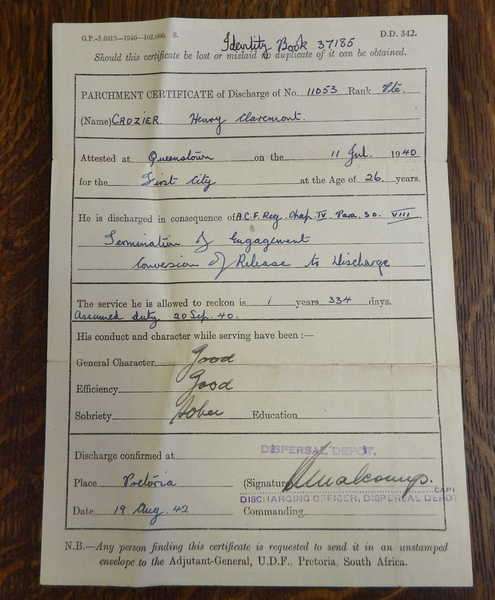 Identity Book 37185
D.D. 342.
Should this certificate be lost or mislaid no duplicate of it can be obtained.
PARCHMENT CERTIFICATE of Discharge of No. 11053 Rank Pte.
(Name) CROZIER Henry Claremont.
Attested at Queenstown on the 11 Jul. 1940
for the First City at the Age of 26 years.
He is discharged in consequence of A.C.F. Reg. Chap. IV Para. 30. VIII
Termination of Engagement
Conversion of Release to Discharge
The service he is allowed to reckon is 1 years 334 days.
Assumed duty 20 Sep. 40.
His conduct and character while serving have been :—
General Character Good
Efficiency Good
Sobriety Sober Education
Discharge confirmed at
DISPERSAL DEPOT.
Place Pretoria (Signature)
CAPT
DISCHARGING OFFICER, DISPERSAL DEPOT
Date 19 Aug 42 Commanding.
N.B.—Any person finding this certificate is requested to send it in an unstamped
envelope to the Adjutant-General, U.D.F., Pretoria, South Africa.